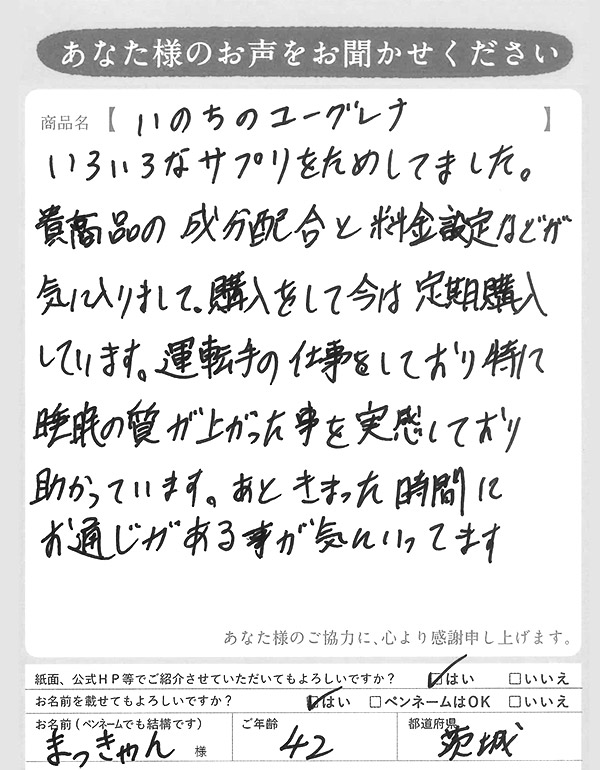 あなた様のお声をお聞かせください
商品名【いのちのユーグレナ】
いろいろなサプリをためしてました。
貴商品の成分配合と料金設定などが
気に入りまして。購入をして今は定期購入
しています。運転手の仕事をしており特に
睡眠の質が上がった事を実感しており
助かっています。あときまった時間に
お通じがある事が気にいってます
あなた様のご協力に、心より感謝申し上げます。
紙面、公式HP等でご紹介させていただいてもよろしいですか? ☑はい □いいえ
お名前を載せてもよろしいですか? ☑はい □ペンネームはOK □いいえ
お名前(ペンネームでも結構です) ご年齢 都道府県
まっきゃん 様 42 茨城